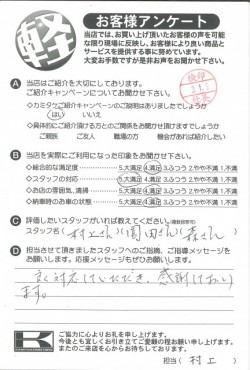 軽
お客様アンケート
当店では、お買い上げ頂いたお客様の声を可能な
限り現場に反映し、お客様により良い商品と
サービスを提供する事に努めています。
大変お手数ですが是非お声をお聞かせ下さい。
A 当店はご紹介を大切にしております。
ご紹介キャンペーンについてお聞かせ下さい。
◇カミタケご紹介キャンペーンのご説明はありましたでしょうか
はい いいえ
◇具体的にご紹介頂ける方とのご関係をお聞かせ頂けますでしょうか
ご親族 ご友人 職場の方 機会があれば紹介したい
B 当店を実際にご利用になった印象をお聞かせ下さい。
◇総合的な満足度 5.大満足 4.満足 3.ふつう 2.やや不満 1.不満
◇スタッフの対応 5.大満足 4.満足 3.ふつう 2.やや不満 1.不満
◇お店の雰囲気、清掃 5.大満足 4.満足 3.ふつう 2.やや不満 1.不満
◇納車時のお車の状態 5.大満足 4.満足 3.ふつう 2.やや不満 1.不満
C 評価したいスタッフがいれば教えてください。(複数回答可)
スタッフ名 (村上さん)(園田さん)(森さん)
D 担当させて頂きましたスタッフへのご指摘、ご指導メッセージを
お願いします。応援メッセージもぜひお願いします。
良く対応していただき、感謝しており
ます。
K
ご協力に心よりお礼を申し上げます。
今後とも宜しくお引き立てご愛顧の程お願い申し上げます。
またのご来店を心からお待ちしております。
担当(村上)